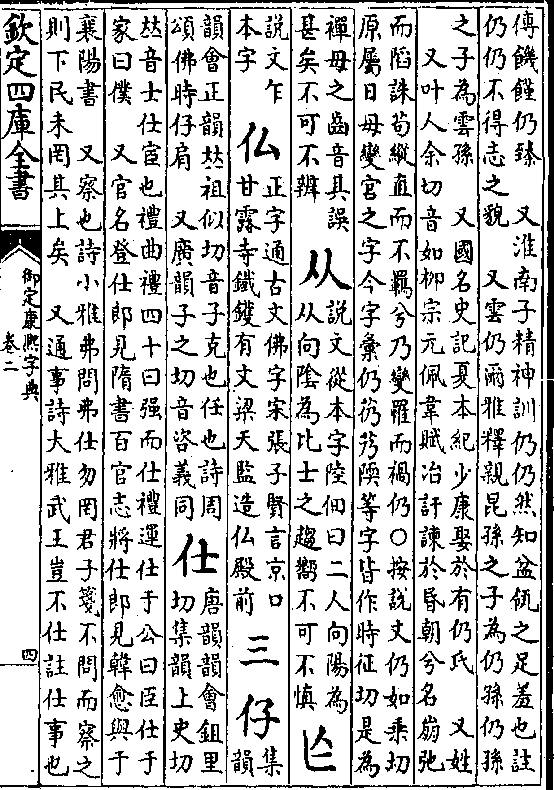 傳饑饉仍臻　又淮南子精神訓仍仍然知盆瓴之足羞也註
仍仍不得志之貌　又雲仍爾雅釋親昆孫之子為仍孫仍孫
之子為雲孫　又國名史記夏本紀少康娶於有仍氏　又姓
又叶人余切音如柳宗元佩韋賦冶訐諫於昏朝兮名崩弛
而陷誅茍縱直而不羈兮乃變罹而禍仍○按說文仍如乘切
原屬日母變宮之字今字彙仍艿芿陾等字皆作時征切是為
禪母之齒音具誤
甚矣不可不辨
从
說文從本字陸佃曰二人向陽為
从向陰為比士之趨嚮不可不慎
亾
說文乍
本字
仏
正字通古文佛字宋張子賢言京口
甘露寺鐵鑊有文梁天監造仏殿前
三
仔
集
韻
韻會正韻𠀤祖似切音子克也任也詩周
頌佛時仔肩　又廣韻子之切音咨義同
仕
唐韻韻會鉏里
切集韻上史切
𠀤音士仕宦也禮曲禮四十曰强而仕禮運仕于公曰臣仕于
家曰僕　又官名登仕郎見隋書百官志將仕郎見韓愈與于
襄陽書　又察也詩小雅弗問弗仕勿罔君子箋不問而察之
則下民未罔其上矣　又通事詩大雅武王豈不仕註仕事也
欽定四庫全書
御定康熙字典
卷二
四